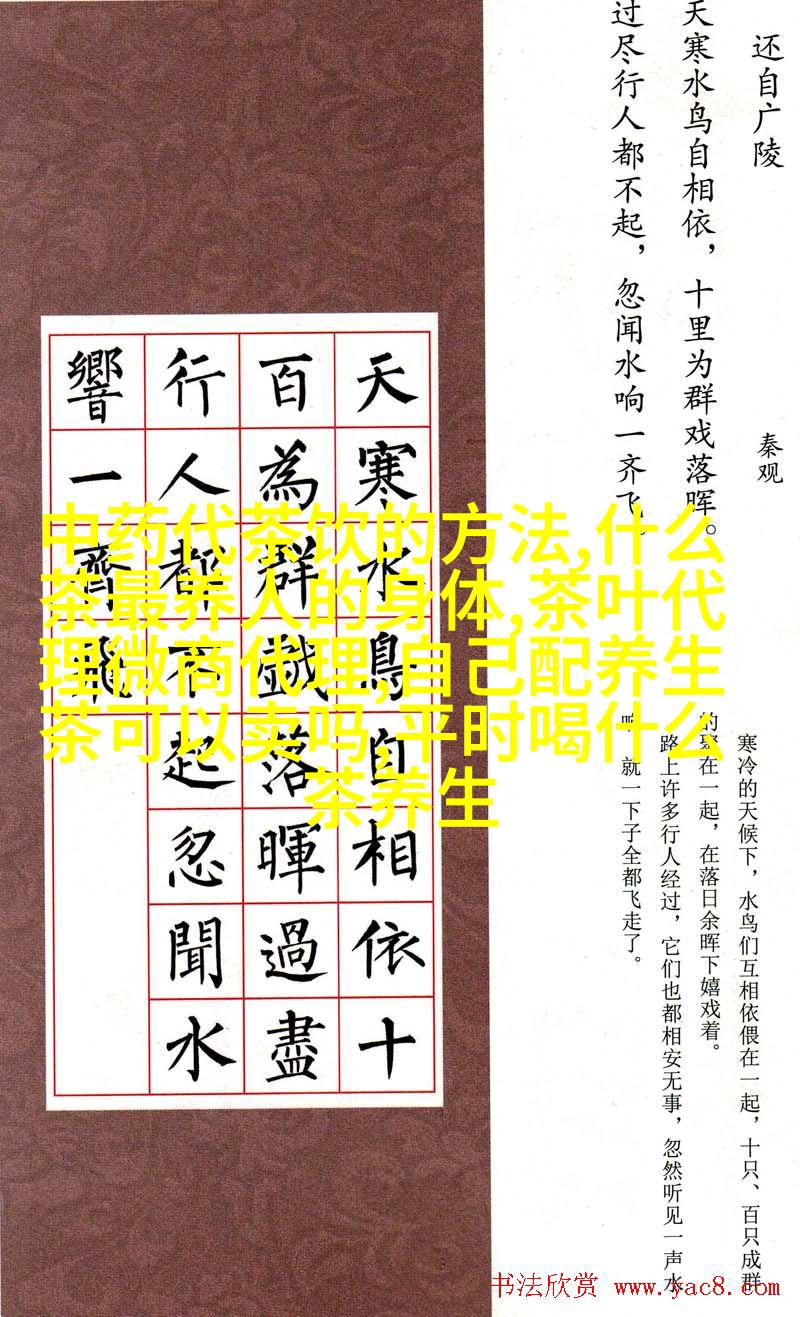 还自广陵
秦观
天寒水鸟自相依，十里为群戏落晖。
过尽行人都不起，忽闻水响一齐飞。
天寒水鳥自相依十
百為群戲落暉過盡
行人都不起忽聞水
響一齊飛
中药代茶饮的方法,什么
茶最养人的身体,茶叶代
理微商代理,自己配养生
茶可以卖吗,平时喝什么
茶养生
寒冷的天候下，水鸟们互相依偎在一起，十只、百只成群
的聚在一起，在落日余晖下嬉戏着。
路上许多行人经过，它们也都相安无事，忽然听见一声水
响，就一下子全都飞走了。
书法欣赏 www.yac8.com